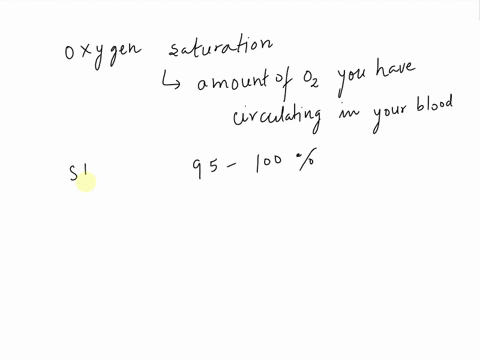 oxygen saturation
↳ amount of O₂ you have
circulating in your blood
95 - 100 %